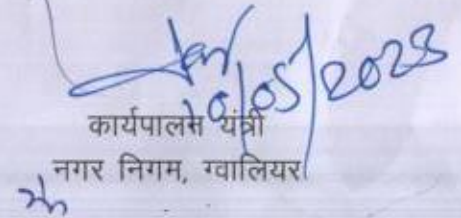 10/05/2023
कार्यपालन यंत्री
नगर निगम, ग्वालियर